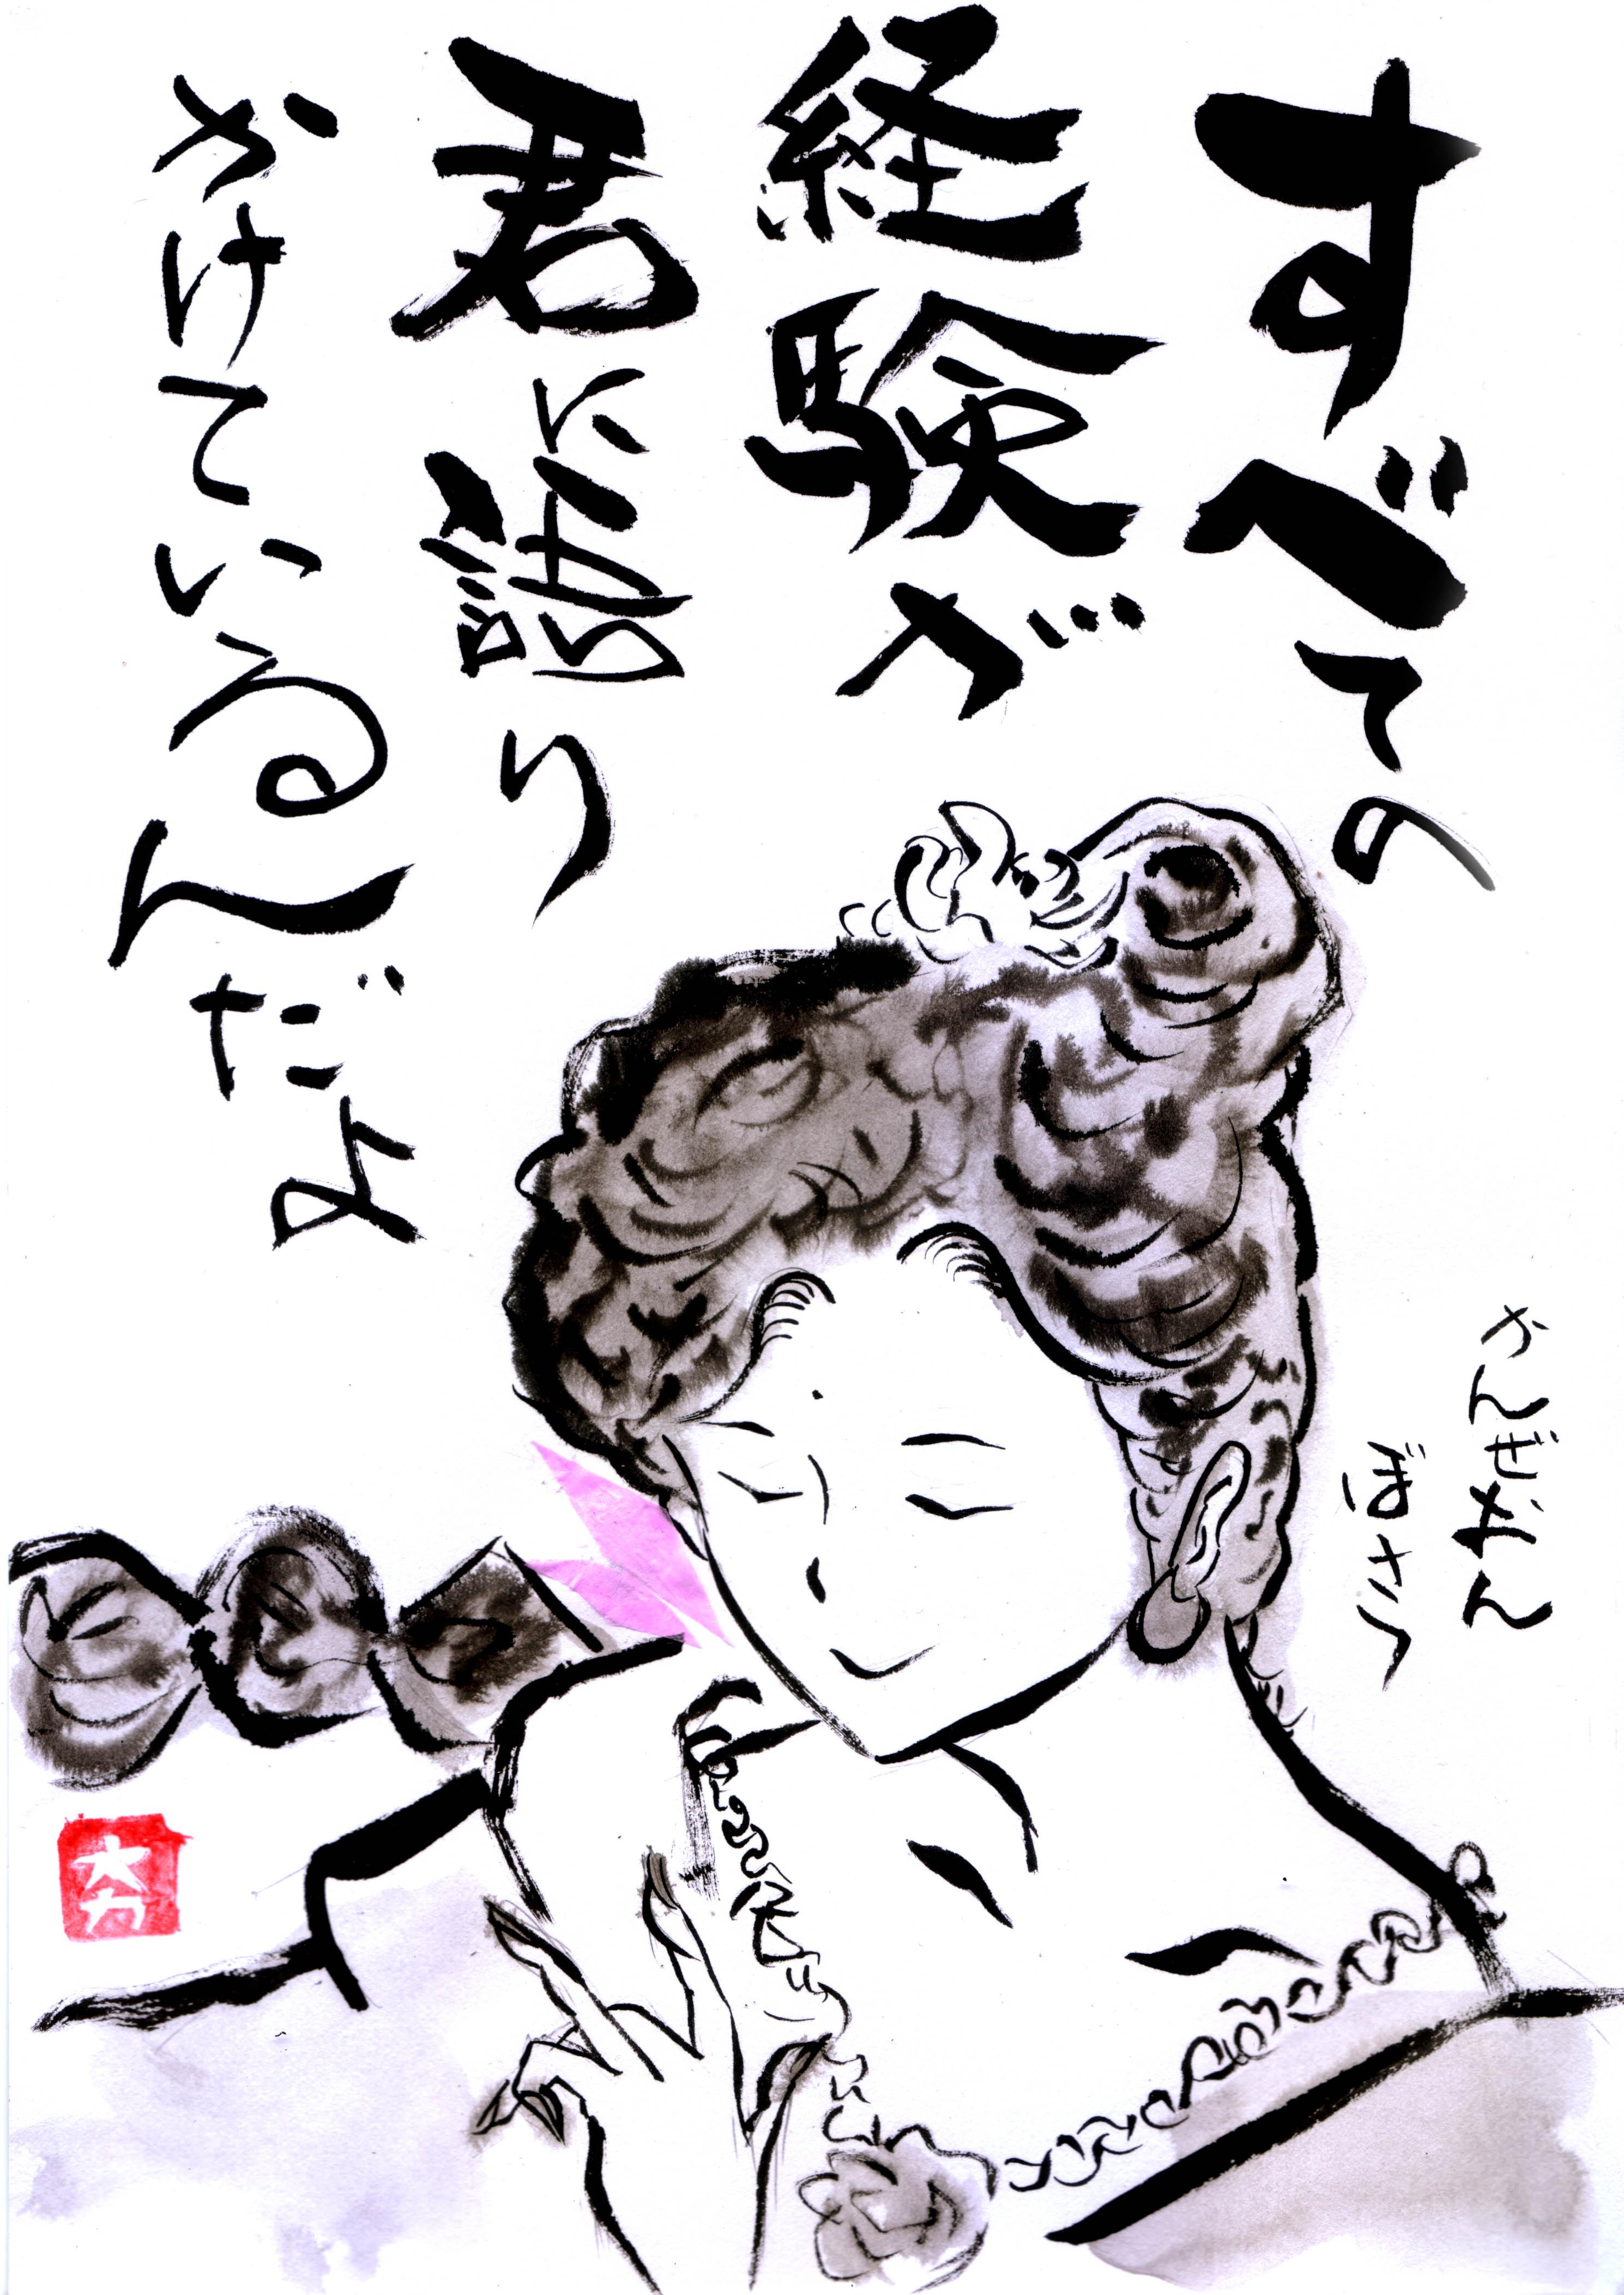 すべての
経験が
君に語り
かけているんだよ
かんぜおん
ぼさつ
大力